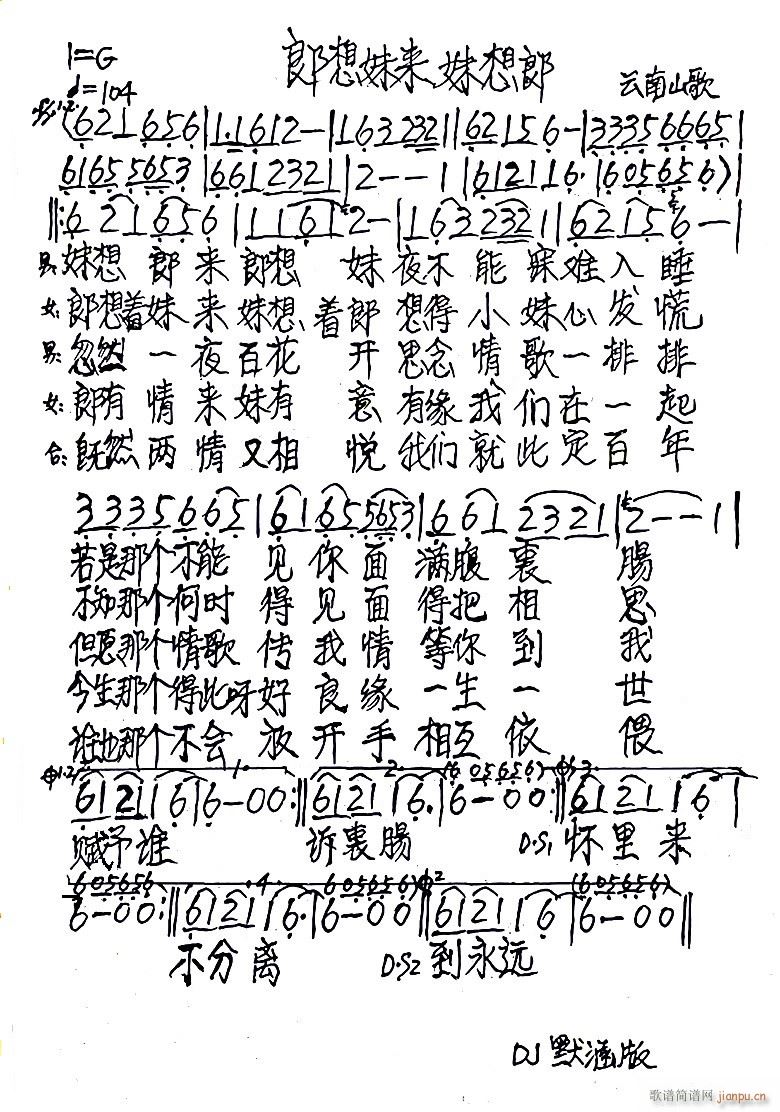 1=G
♩=104
郎想妹来妹想郎
云南山歌
𝄋1.2.
(621 656|1·1612-|163232||62156-|33356665|
616555653|661 2321|2--1|612116·|605656)|
||:6 21 656|11612-|1632321|62156--|
男:妹想 郎来郎想 妹夜不能寐难入睡
女:郎想着妹来妹想着郎 想得小妹心发慌
男:忽然一夜百花开思念情歌一排排
女:郎有情来妹有意有缘我们在一起
合:既然两情又相悦我们就此定百年
3335665|61655653|661 2321|2--1|
若是那个不能见你面满腹裏腸
不知那个何时得见面得把相思
但愿那个情歌传我情等你到我
今生那个得此呀好良缘一生一世
谁也那个不会放开手相互依偎
𝄌1.2. 1. 2. (605656) 𝄌3
6121 16|6-00:||6121 16·|6-00:||6121 16|
赋予谁 诉裏腸 D.S1 怀里来
605656 4 605656) 𝄌2 (605656)
6-00:||6121 16·|6-00||6121 16|6-00||
不分离 D.S2 到永远
DJ默涵版
歌谱简谱网
jianpu.cn